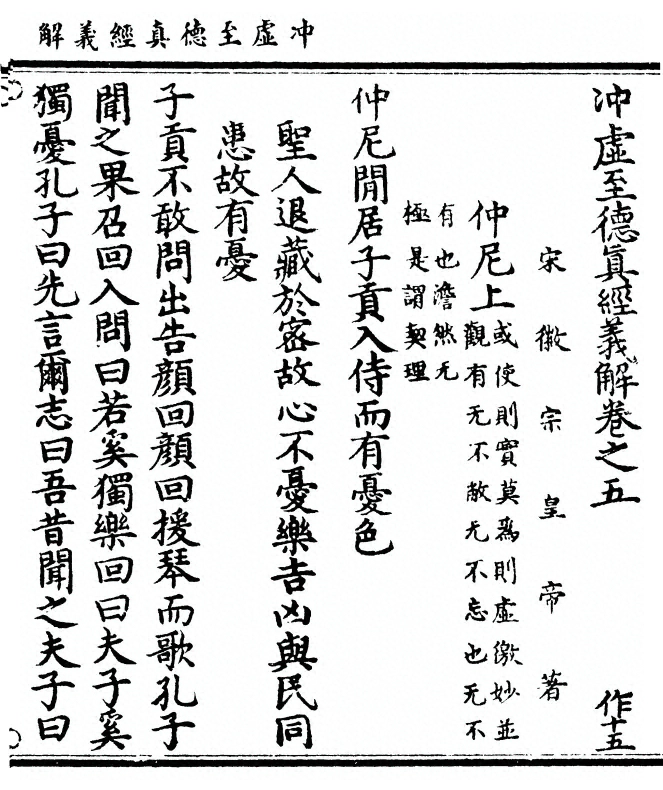 冲虛至德真經義解
冲虛至德眞經義解卷之五 作十五
宋徽宗皇帝著
仲尼上 或使則實莫爲則虛徼妙並
觀有无不敝无不忘也无不
有也澹然无
極是謂契理
仲尼閒居子貢入侍而有憂色
聖人退藏於密故心不憂樂吉凶與民同
患故有憂
子貢不敢問出告顔回顔回援琴而歌孔子
聞之果召回入問曰若奚獨樂回曰夫子奚
獨憂孔子曰先言爾志曰吾昔聞之夫子曰